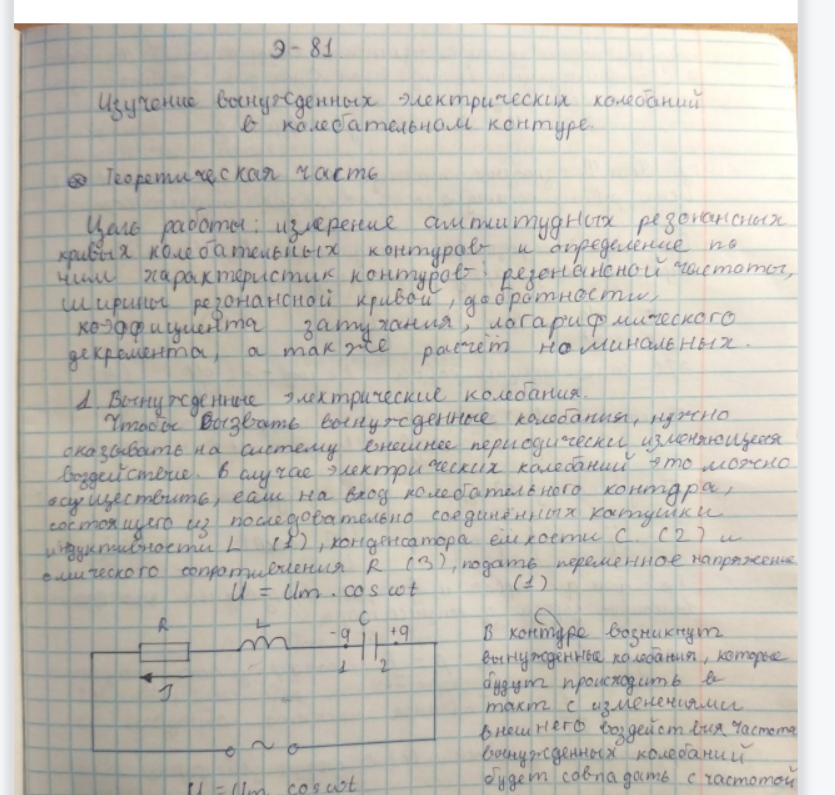 Э-81
Изучение вынужденных электрических колебаний
в колебательном контуре.
Теоретическая часть
Цель работы: измерение амплитудных резонансных
кривых колебательных контуров и определение по
ним характеристик контуров: резонансной частоты,
ширины резонансной кривой, добротности,
коэффициента затухания, логарифмического
декремента, а также расчёт номинальных.
1. Вынужденные электрические колебания.
Чтобы вызвать вынужденные колебания, нужно
оказывать на систему внешнее периодически изменяющееся
воздействие. В случае электрических колебаний это можно
осуществить, если на вход колебательного контура,
состоящего из последовательно соединённых катушки
индуктивности L (1), конденсатора ёмкости C. (2) и
омического сопротивления R (3), подать переменное напряжение
U = Um · cos ωt (1)
R L C
-q +q
1 2
J
~
U = Um cos ωt
В контуре возникнут
вынужденные колебания, которые
будут происходить в
такт с изменениями
внешнего воздействия частота
вынужденных колебаний
будет совпадать с частотой